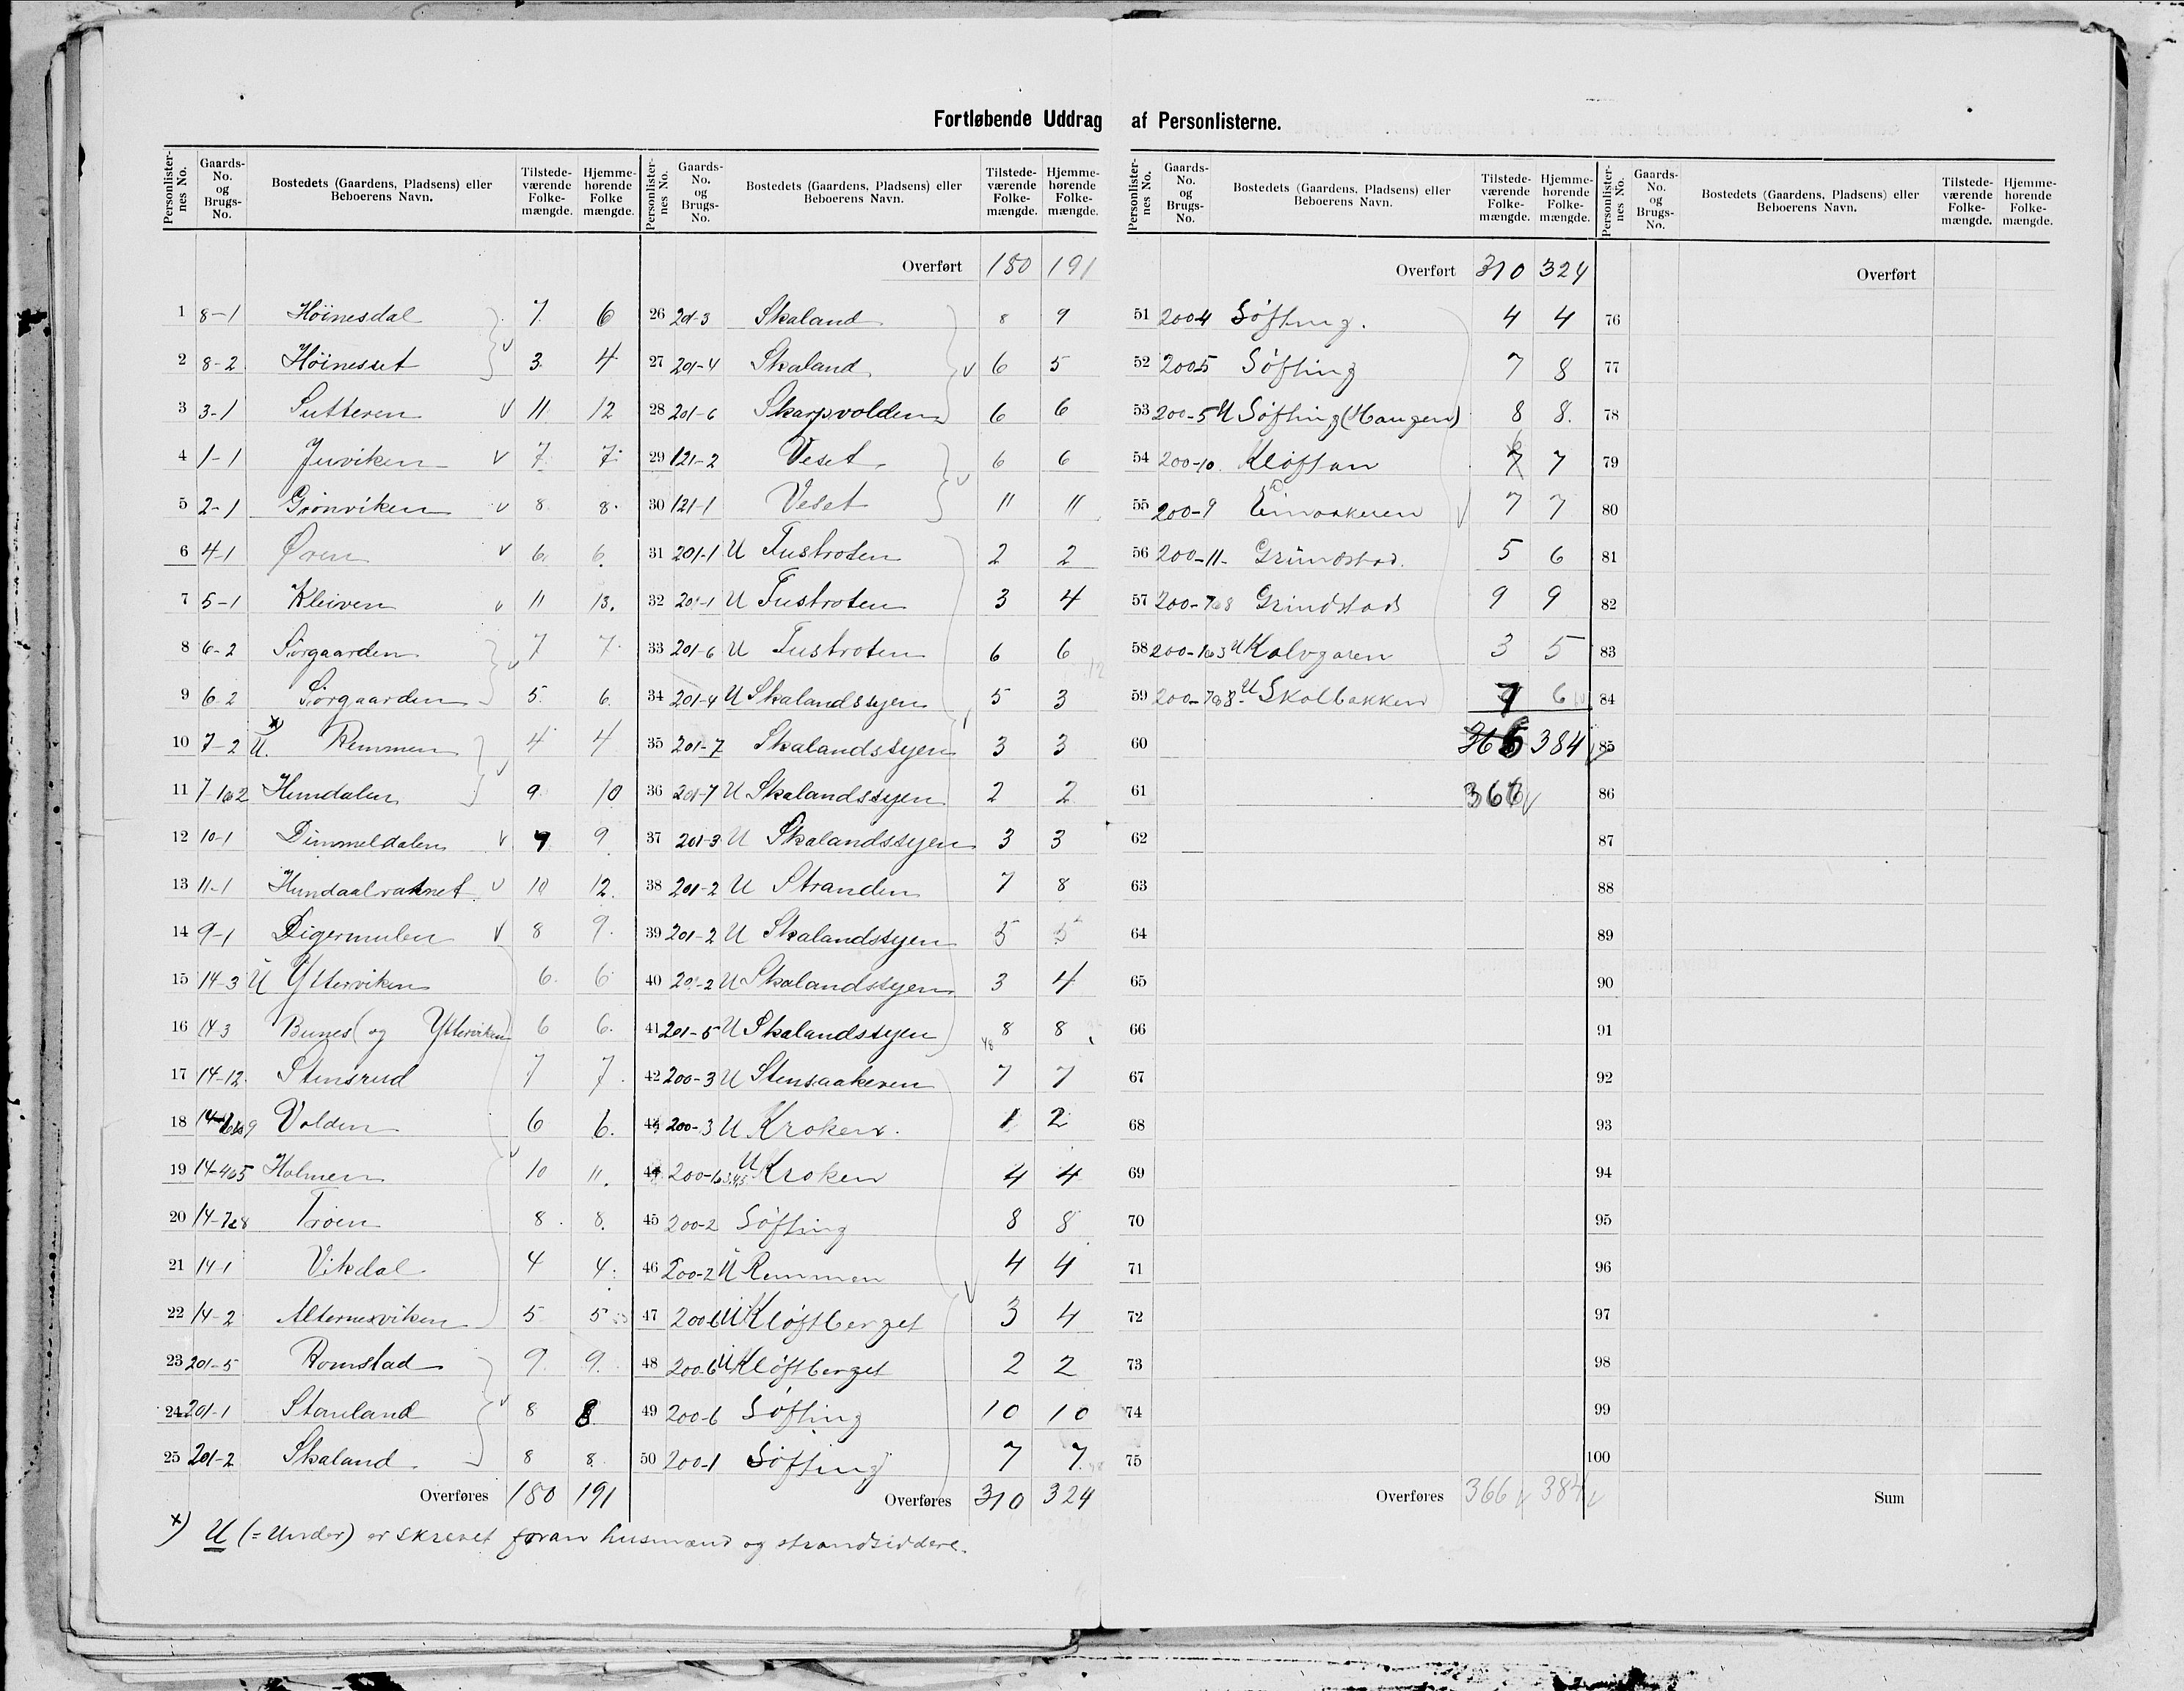 Fortløbende Uddrag af Personlisterne.
Personlister-nes No. Gaards-No. og Brugs-No. Bostedets (Gaardens, Pladsens) eller Beboerens Navn. Tilstede-værende Folke-mængde. Hjemme-hørende Folke mængde.
1 8-1 Höinesdal 7 6
2 8-2 Höinesset 3 4
3 3-1 Sutteren v 11 12
4 1-1 Juviken v 7 7
5 2-1 Grönviken v 8 8
6 4-1 Øren v 6 6
7 5-1 Kleiven v 11 13
8 6-2 Sörgaarden 7 7
9 6-2 Sörgaarden 5 6
10 7-2 U. x) Remmen 4 4
11 7-1og2 Hundalen 9 10
12 10-1 Dimmeldalen v 7 9
13 11-1 Hundaalvatnet v 10 12
14 9-1 Digermulen v 8 9
15 14-3 U Ytterviken 6 6
16 14-3 Bunes (og Ytterviken) 6 6
17 14-12 Stensrud 7 7
18 Volden 6 6
19 14-4og5 Holmen 10 11
20 14-7og8 Troen 8 8
21 14-1 Vikdal 4 4
22 14-2 Alternesviken 5 5
23 201-5 Romstad 9 9
24 201-1 8 8
25 201-2 Skaland 8 8
Overføres 180 191
x) U (= Under) er skrevet foran husmænd og strandsiddere.
Personlister-nes No. Gaards-No. og Brugs-No. Bostedets (Gaardens, Pladsens) eller Beboerens Navn. Tilstede-værende Folke-mængde. Hjemme-hørende Folke-mængde.
Overført 180 191
26 201-3 Skaland 8 9
27 201-4 Skaland v 6 5
28 201-6 Skarpvolden 6 6
29 121-2 Veset 6 6
30 121-1 Veset 11 11
31 201-1 U Tustroten 2 2
32 201-1 U Tustroten 3 4
33 201-6 U Tustroten 6 6
34 201-4 U Skalandssyen 5 3
35 201-7 Skalandssyen 3 3
36 201-7 U Skalandssyen 2 2
37 201-3 U Skalandssyen 3 3
38 201-2 U Stranden 7 8
39 201-2 U Skalandssyen 5 5
40 201-2 U Skalandssyen 3 4
41 201-5 U Skalandssyen 8 8
42 200-3 U Stensaakeren 7 7
43 200-3 U Kroken 1 2
44 U Kroken 4 4
45 200-2 Söfting 8 8
46 200-2 U Remmen 4 4
47 200-6 U Klöftberget 3 4
48 200-6 U Klöftberget 2 2
49 200-6 Söfting 10 10
50 200-1 Söfting 7 7
Overføres 310 324
Personlister-nes No. Gaards-No. og Brugs-No. Bostedets (Gaardens, Pladsens) eller Beboerens Navn. Tilstede-værende Folke-mængde. Hjemme-hørende Folke-mængde.
Overført 310 324
51 200-4 Söfting 4 4
52 200-5 Söfting 7 8
53 200-5 U Söfting (Haugen) 8 8
54 200-10 Klöftan 7 7
55 200-9 Einaakeren 7 7
56 200-11 Grundstad 5 6
57 200-7og8 Grindstad 9 9
58 200-1og3 U Kalvgaren 3 5
59 200-7og8 U Skolbakken 7 6
60 366 384
61 366 v
62
63
64
65
66
67
68
69
70
71
72
73
74
75
Overføres 366 v 384 v
Personlister-nes No. Gaards-No. og Brugs-No. Bostedets (Gaardens, Pladsens) eller Beboerens Navn. Tilstede-værende Folke-mængde. Hjemme-hørende Folke-mængde.
Overført
76
77
78
79
80
81
82
83
84
85
86
87
88
89
90
91
92
93
94
95
96
97
98
99
100
Sum